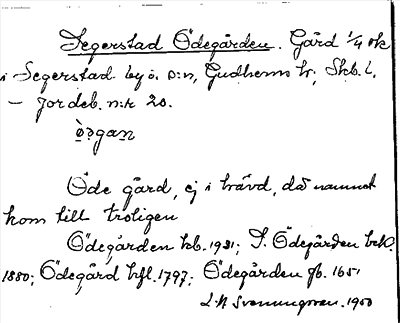 Segerstad Ödegården. Gård 1/4 mk
i Segerstad by o. s:n, Gudhems hr, Skb. l.
– Jordeb. n:r 20.
Öde gård, ej i hävd, då namnet
kom till troligen
Ödegården kb. 1931; S. Ödegården
1880; Ödegård hfl. 1797; Ödegården jb. 1651
1950